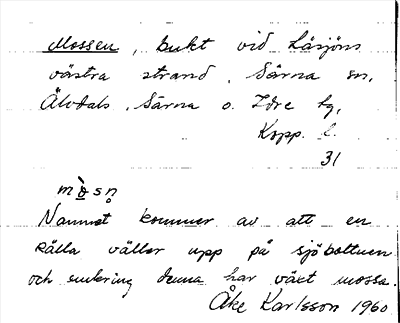 Mossen, bukt vid Låsjöns
västra strand. Särna sn,
Älvdals, Särna o. Idre tg,
Kopp. l.
31
mo̠̊̀sn̥
Namnet kommer av att en
källa väller upp på sjöbottnen
och omkring denna har växt mossa.
Åke Karlsson 1960